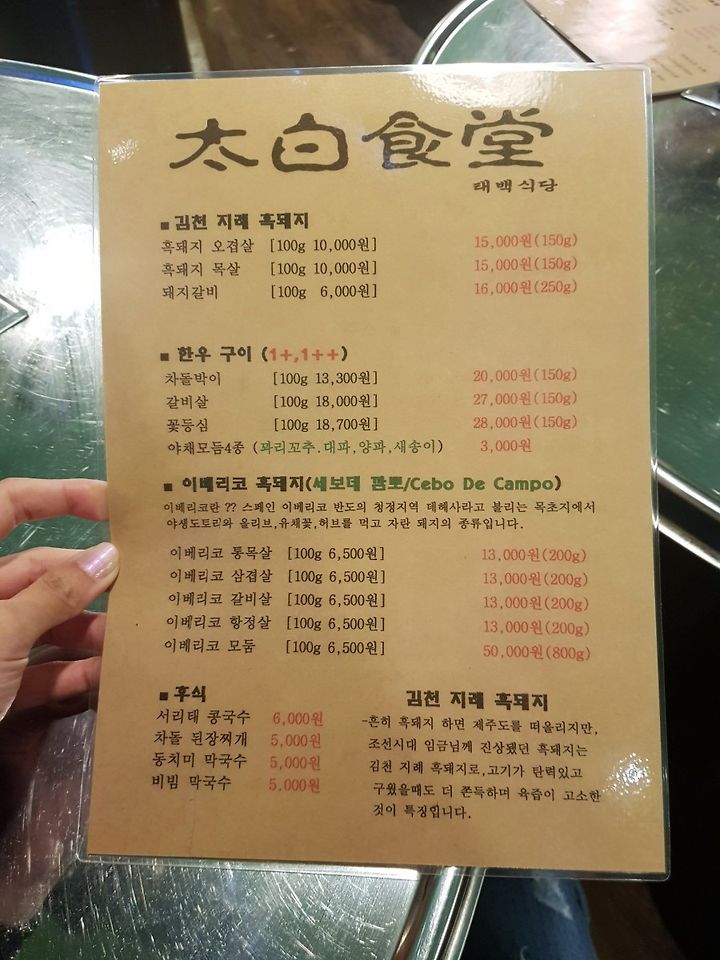 太白食堂
태백식당
■ 김천 지례 흑돼지
흑돼지 오겹살 [100g 10,000원] 15,000원(150g)
흑돼지 목살 [100g 10,000원] 15,000원(150g)
돼지갈비 [100g 6,000원] 16,000원(250g)
■ 한우 구이 (1+,1++)
차돌박이 [100g 13,300원] 20,000원(150g)
갈비살 [100g 18,000원] 27,000원(150g)
꽃등심 [100g 18,700원] 28,000원(150g)
야채모듬4종 (꽈리꼬추.대파,양파,새송이) 3,000원
■ 이베리코 흑돼지(세보데 깜뽀/Cebo De Campo)
이베리코란 ?? 스페인 이베리코 반도의 청정지역 데헤사라고 불리는 목초지에서
야생도토리와 올리브,유채꽃,허브를 먹고 자란 돼지의 종류입니다.
이베리코 통목살 [100g 6,500원] 13,000원(200g)
이베리코 삼겹살 [100g 6,500원] 13,000원(200g)
이베리코 갈비살 [100g 6,500원] 13,000원(200g)
이베리코 항정살 [100g 6,500원] 13,000원(200g)
이베리코 모둠 [100g 6,500원] 50,000원(800g)
■ 후식
서리태 콩국수 6,000원
차돌 된장찌개 5,000원
동치미 막국수 5,000원
비빔 막국수 5,000원
김천 지례 흑돼지
-흔히 흑돼지 하면 제주도를 떠올리지만,
조선시대 임금님께 진상됐던 흑돼지는
김천 지례 흑돼지로,고기가 탄력있고
구웠을때도 더 쫀득하며 육즙이 고소한
것이 특징입니다.